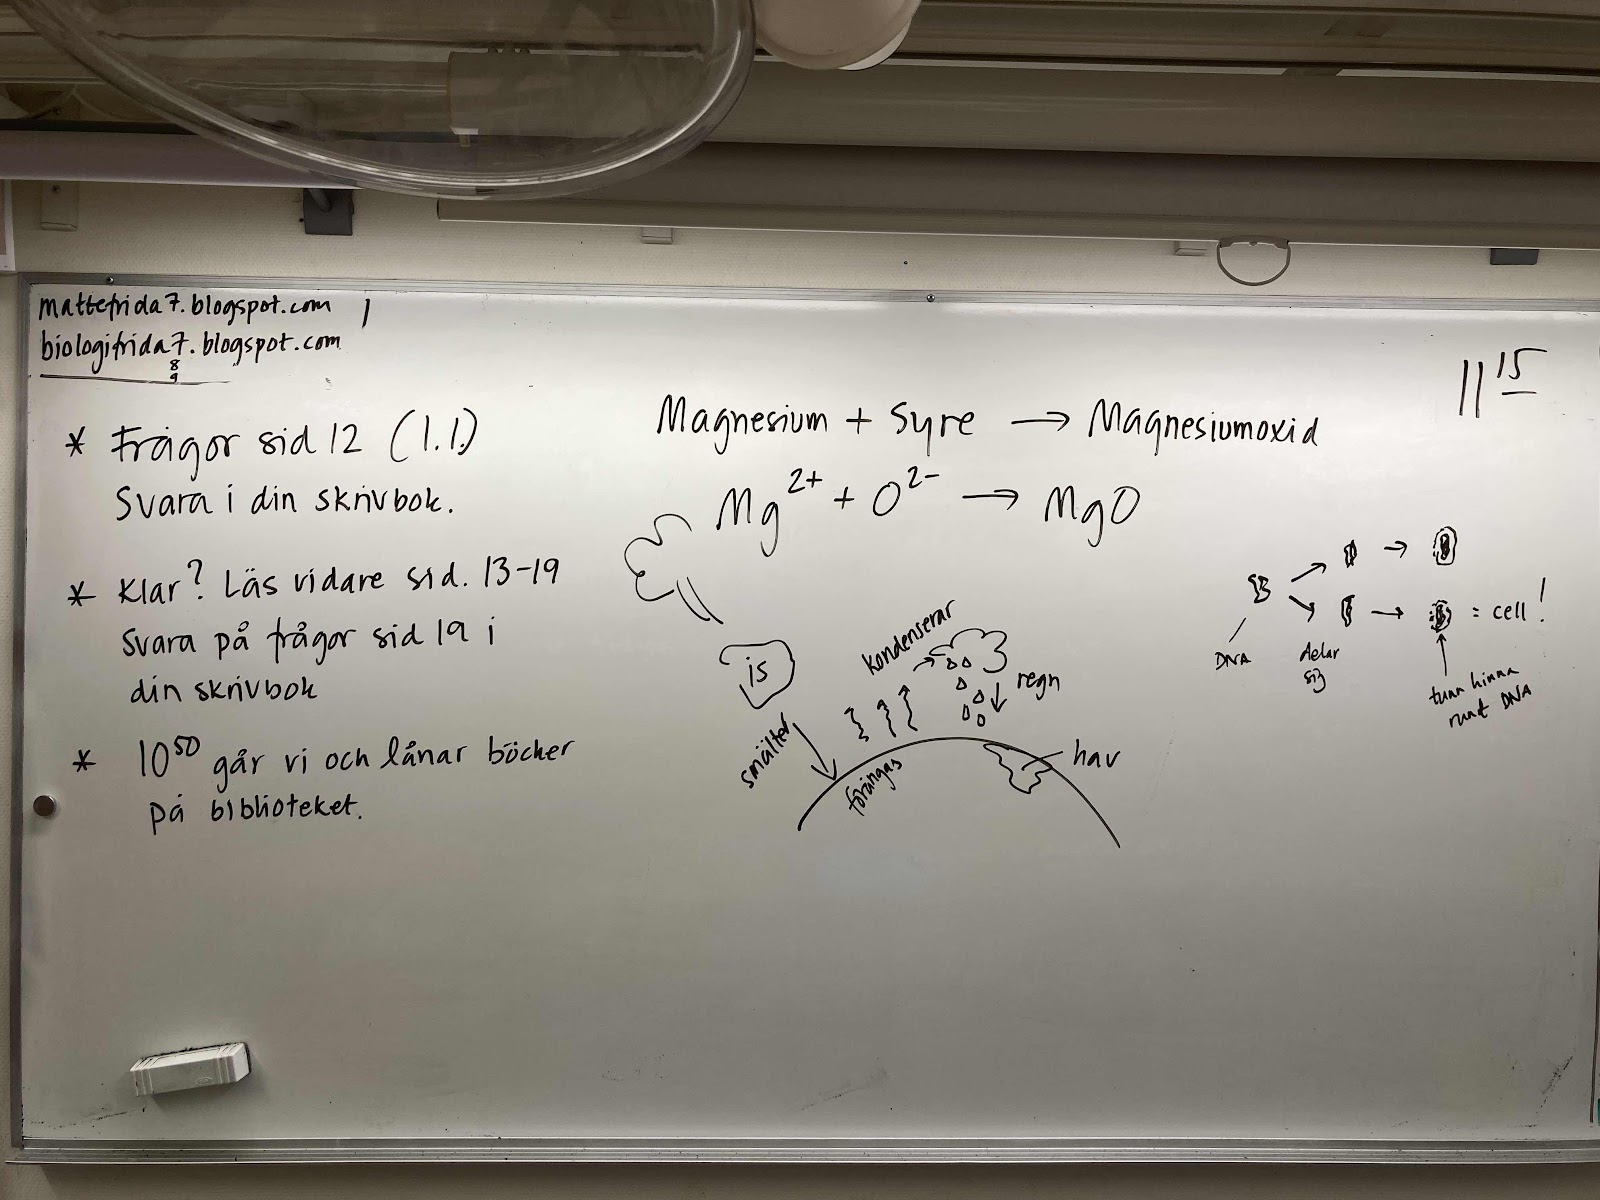 mattefrida7.blogspot.com
biologifrida7.blogspot.com
8
9
* Frågor sid 12 (1.1.)
Svara i din skrivbok.
* Klar? Läs vidare sid. 13-19
Svara på frågor sid 19 i
din skrivbok
* 10⁵⁰ går vi och lånar böcker
på biblioteket.
Magnesium + Syre → Magnesiumoxid
Mg²⁺ + O²⁻ → MgO
11¹⁵
is
smälter
förångas
kondenserar
regn
hav
DNA
delar
sig
= cell!
tunn hinna
runt DNA